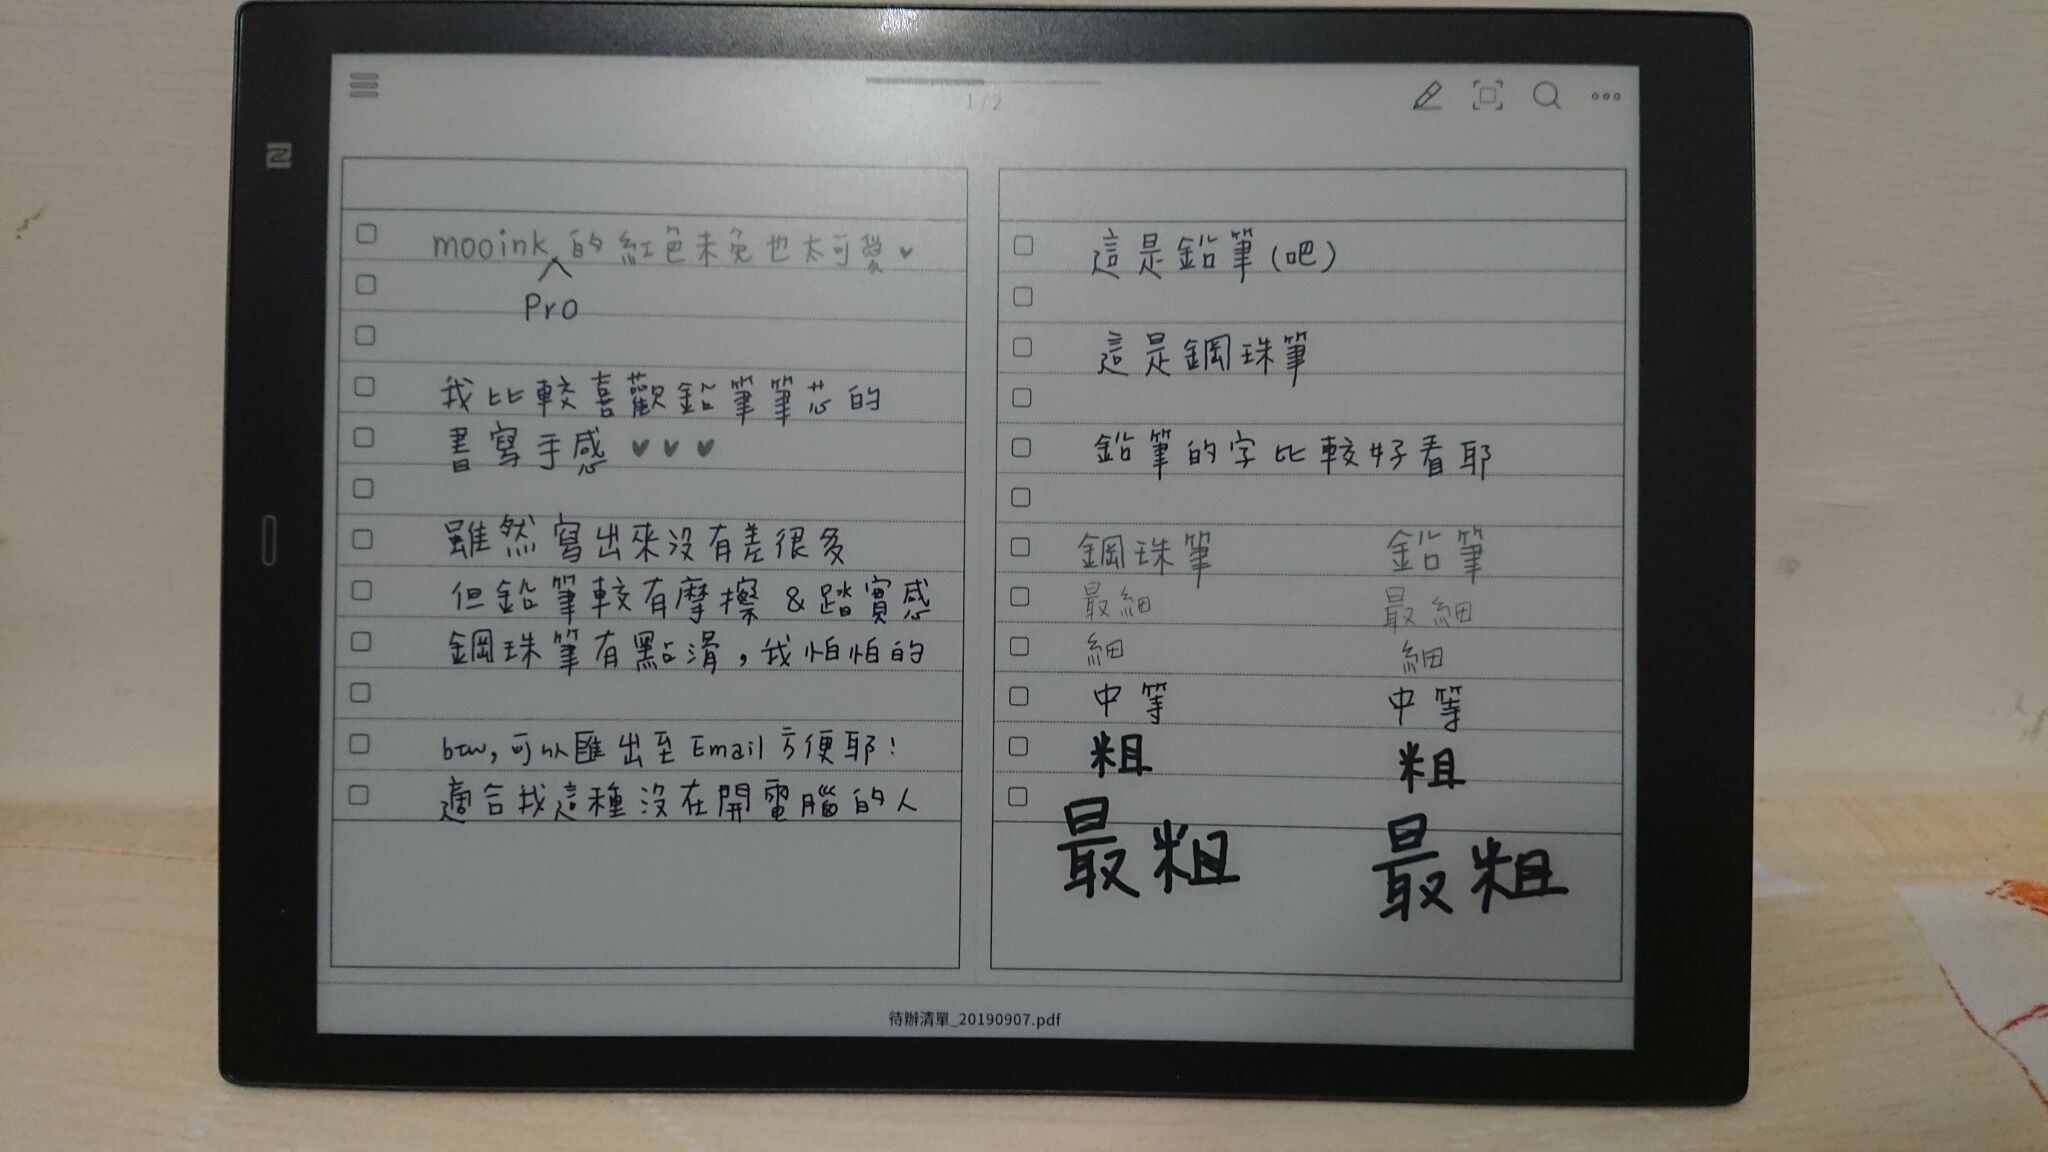 1/2
mooink 的紅色未免也太可愛♥
Pro
我比較喜歡鉛筆筆芯的
書寫手感♥♥♥
雖然寫出來沒有差很多
但鉛筆較有摩擦&踏實感
鋼珠筆有點滑,我怕怕的
btw,可以匯出至Email方便耶!
適合我這種沒在開電腦的人
這是鉛筆(吧)
這是鋼珠筆
鉛筆的字比較好看耶
鋼珠筆 鉛筆
最細 最細
細 細
中等 中等
粗 粗
最粗 最粗
待辦清單_20190907.pdf